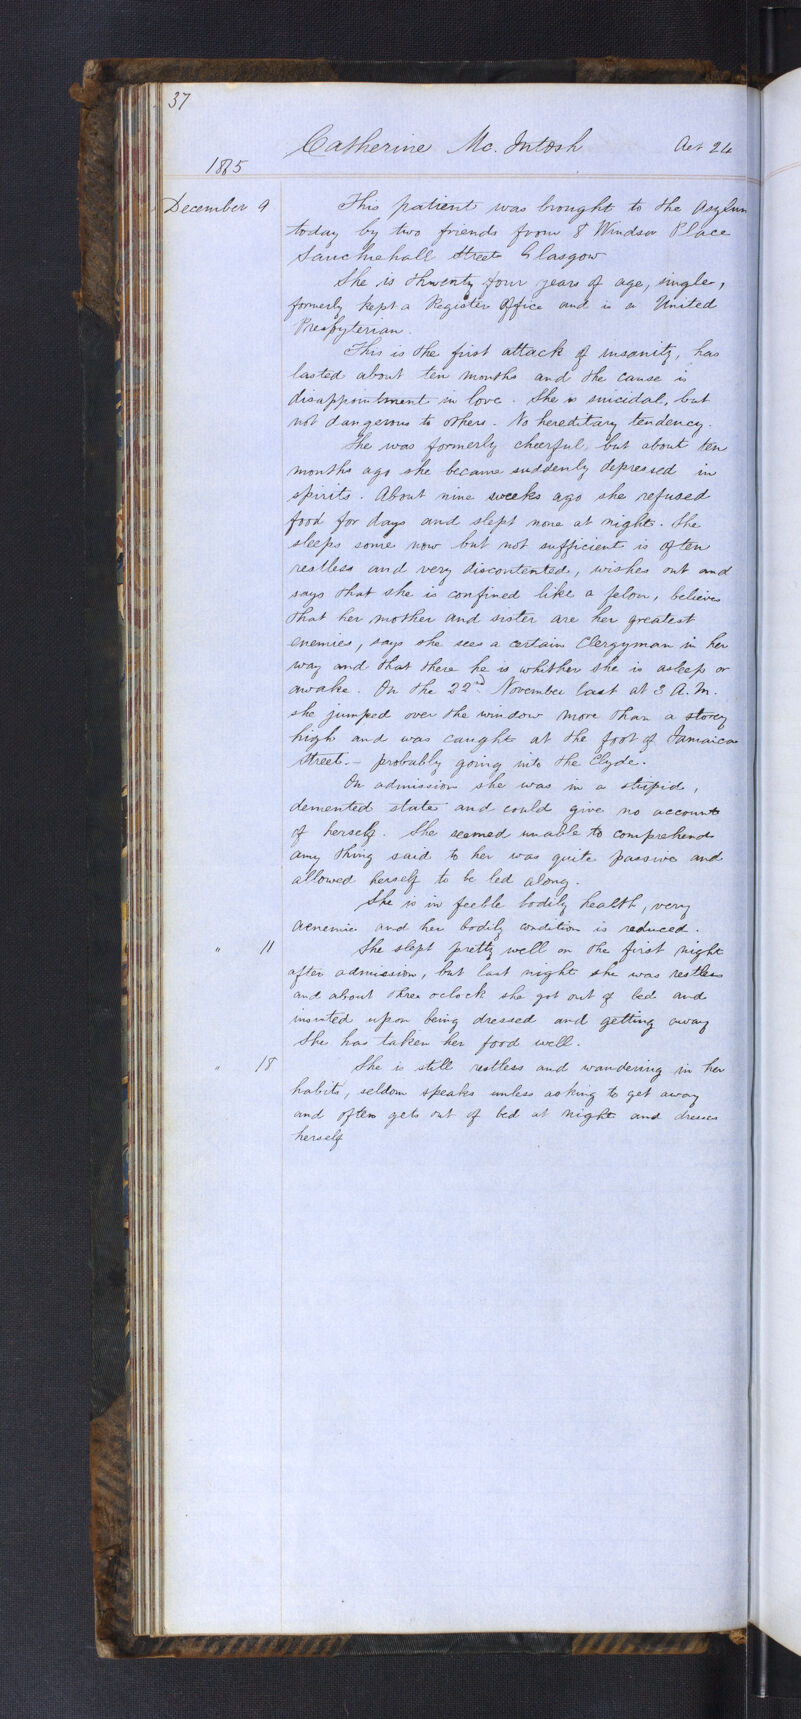 37
Catherine Mc. Intosh Aet 24
1865
December 9 This patient was brought to the Asylum
today by two friends from 8 Windsor Place
Sauchiehall Street Glasgow
She is thwenty four years of age, single,
formerly kept a Register Office and is a United
Presbyterian.
This is the first attack of insanity, has
lasted about ten months and the cause is
disappointment in love. She is suicidal, but
not dangerous to others. No hereditary tendency.
She was formerly cheerful, but about ten
months ago she became suddenly depressed in
spirits. About nine weeks ago she refused
food for days and slept none at night. She
sleeps some now but not sufficient is often
restless and very discontented, wishes out and
says that she is confined like a felon, believes
that her mother and sister are her greatest
enemies, says she sees a certain Clergyman in her
way and that there he is whither she is asleep or
awake. On the 22nd November last at 3 A.M.
she jumped over the window more than a storey
high and was caught at the foot of Jamaica
Street. - probably going into the Clyde.
On admission she was in a stupid,
demented state and could give no account
of herself. She seemed unable to comprehend
any thing said to her was quite passive and
allowed herself to be led along.
She is in feeble bodily health, very
aenemic and her bodily condition is reduced.
" 11 She slept pretty well on the first night
after admission, but last night she was restless
and about three oclock she got out of bed and
insisted upon being dressed and getting away
She has taken her food well.
" 18 She is still restless and wandering in her
habits, seldom speaks unless asking to get away
and often gets out of bed at night and dresses
herself